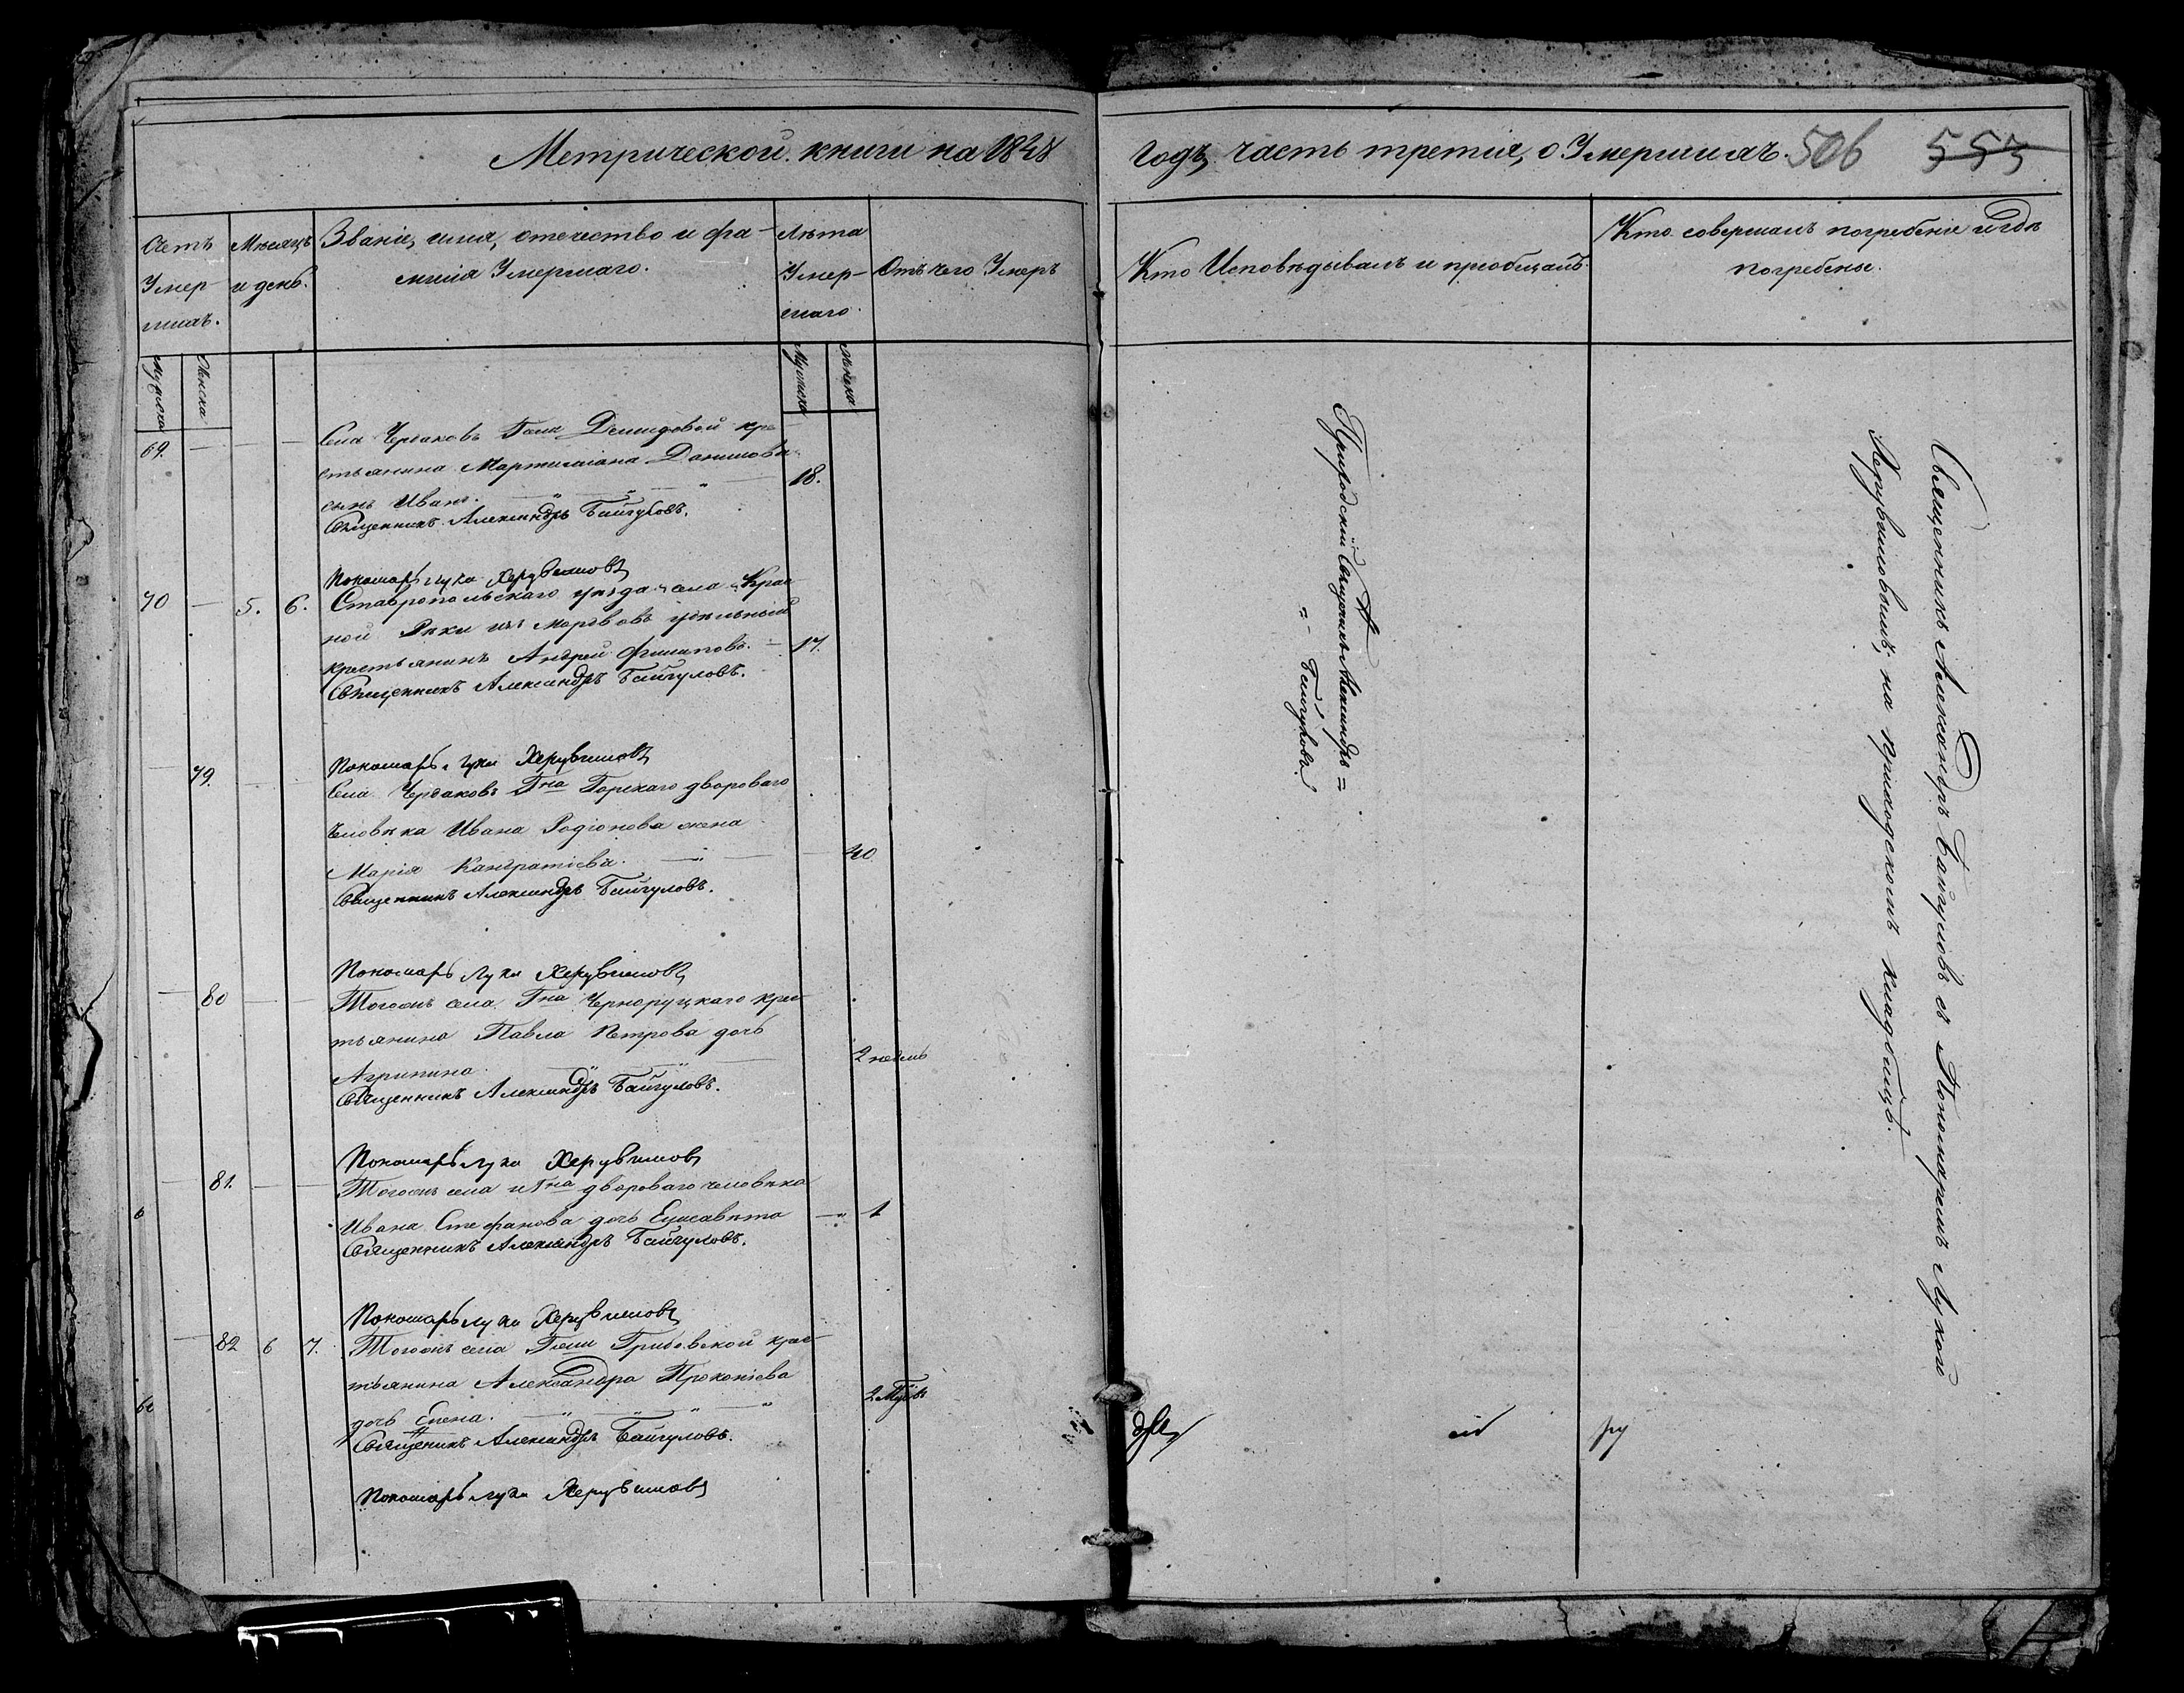 Метрической книги на 1848
годъ, часть третія, о Умершихъ. 506 553
Счетъ Умер-шихъ.
Мѣсяцъ и день.
Званіе, имя, отечество и фа-
милія Умершаго.
Лѣта Умер-шаго.
Отъ чего Умеръ
Кто Исповѣдывалъ и пріобщалъ.
Кто совершалъ погребеніе и гдѣ
погребены.
Мужеска
Женска
Мужеска
Женска
69. — — —
Села Чердаковъ Гжи Демидовой кре-
стьянина Мартиміана Данилова
сынъ Иванъ. 18.
Священникъ Александръ Байгуловъ.
Пономарь Лука Херувимовъ
70 — 5. 6.
Ставропольскаго уѣзда села Крас-
ной Рѣки изъ мордвовъ удѣльный
крестьянинъ Андрей Филиповъ. — 17.
Священникъ Александръ Байгуловъ.
Пономарь Лука Херувимовъ
— 79. — —
Села Чердаковъ Гна Горскаго двороваго
человѣка Ивана Родіонова жена
Марія Кандратіева. — 40
Священникъ Александръ Байгуловъ.
Пономарь Лука Херувимовъ
— 80 — —
Тогожъ села Гна Черноруцкаго крес-
тьянина Павла Петрова дочь
Агрипина. 2 недѣль
Священникъ Александръ Байгуловъ.
Пономарь Лука Херувимовъ
— 81. — —
Тогожъ села и Гна двороваго человѣка
Ивана Стефанова дочь Елисавета — 1
Священникъ Александръ Байгуловъ.
Пономарь Лука Херувимовъ
— 82 6 7.
Тогожъ села Гжи Грибовской крес-
тьянина Александра Прокопіева
дочь Елена. 2
Священникъ Александръ Байгуловъ.
Пономарь Лука Херувимовъ
Приходскій Священникъ Александръ =
= Байгуловъ.
Священникъ Александръ Байгуловъ съ Пономаремъ Лукою
Херувимовымъ; на приходскомъ кладбищѣ.
ру